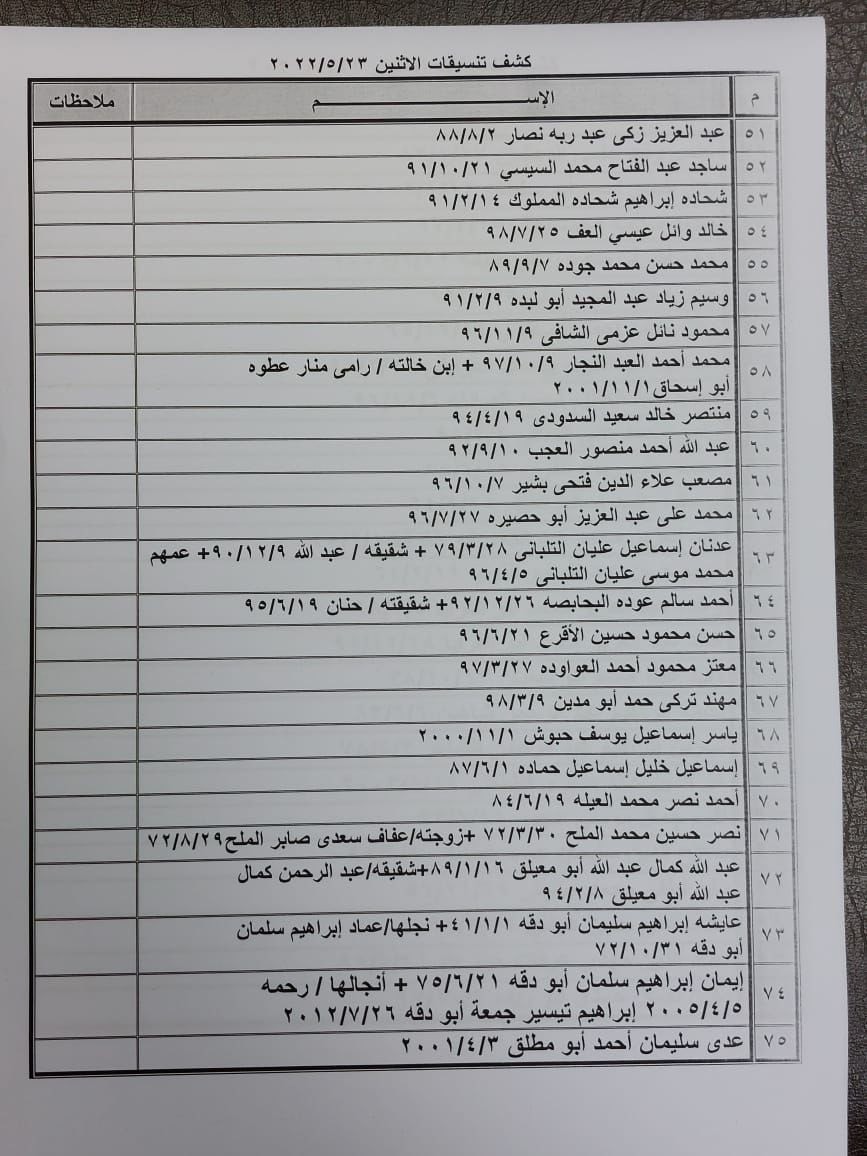 كشف تنسيقات الاثنين ٢٠٢٢/٥/٢٣
م الإســـــــــم ملاحظات
٥١ عبد العزيز زكى عبد ربه نصار ٨٨/٨/٢
٥٢ ساجد عبد الفتاح محمد السيسي ٩١/١٠/٢١
٥٣ شحاده إبراهيم شحاده المملوك ٩١/٢/١٤
٥٤ خالد وائل عيسي العف ٩٨/٧/٢٥
٥٥ محمد حسن محمد جوده ٨٩/٩/٧
٥٦ وسيم زياد عبد المجيد أبو لبده ٩١/٢/٩
٥٧ محمود نائل عزمى الشافى ٩٦/١١/٩
٥٨ محمد أحمد العبد النجار ٩٧/١٠/٩ + إبن خالته / رامى منار عطوه
أبو إسحاق ٢٠٠١/١١/١
٥٩ منتصر خالد سعيد السدودى ٩٤/٤/١٩
٦٠ عبد الله أحمد منصور العجب ٩٢/٩/١٠
٦١ مصعب علاء الدين فتحى بشير ٩٦/١٠/٧
٦٢ محمد على عبد العزيز أبو حصيره ٩٦/٧/٢٧
٦٣ عدنان إسماعيل عليان التلبانى ٧٩/٣/٢٨ + شقيقه / عبد الله ٩٠/١٢/٩+ عمهم
محمد موسى عليان التلبانى ٩٦/٤/٥
٦٤ أحمد سالم عوده البحابصه ٩٢/١٢/٢٦+ شقيقته / حنان ٩٥/٦/١٩
٦٥ حسن محمود حسين الأقرع ٩٦/٦/٢١
٦٦ معتز محمود أحمد العواوده ٩٧/٣/٢٧
٦٧ مهند تركى حمد أبو مدين ٩٨/٣/٩
٦٨ ياسر إسماعيل يوسف حبوش ٢٠٠٠/١١/١
٦٩ إسماعيل خليل إسماعيل حماده ٨٧/٦/١
٧٠ أحمد نصر محمد العيله ٨٤/٦/١٩
٧١ نصر حسين محمد الملح ٧٢/٣/٣٠ +زوجته/عفاف سعدى صابر الملح٧٢/٨/٢٩
٧٢ عبد الله كمال عبد الله أبو معيلق ٨٩/١/١٦+شقيقه/عبد الرحمن كمال
عبد الله أبو معيلق ٩٤/٢/٨
٧٣ عايشه إبراهيم سليمان أبو دقه ٤١/١/١+ نجلها/عماد إبراهيم سلمان
أبو دقه ٧٢/١٠/٣١
٧٤ إيمان إبراهيم سلمان أبو دقه ٧٥/٦/٢١ + أنجالها / رحمه
٢٠٠٥/٤/٥ إبراهيم تيسير جمعة أبو دقه ٢٠١٢/٧/٢٦
٧٥ عدى سليمان أحمد أبو مطلق ٢٠٠١/٤/٣